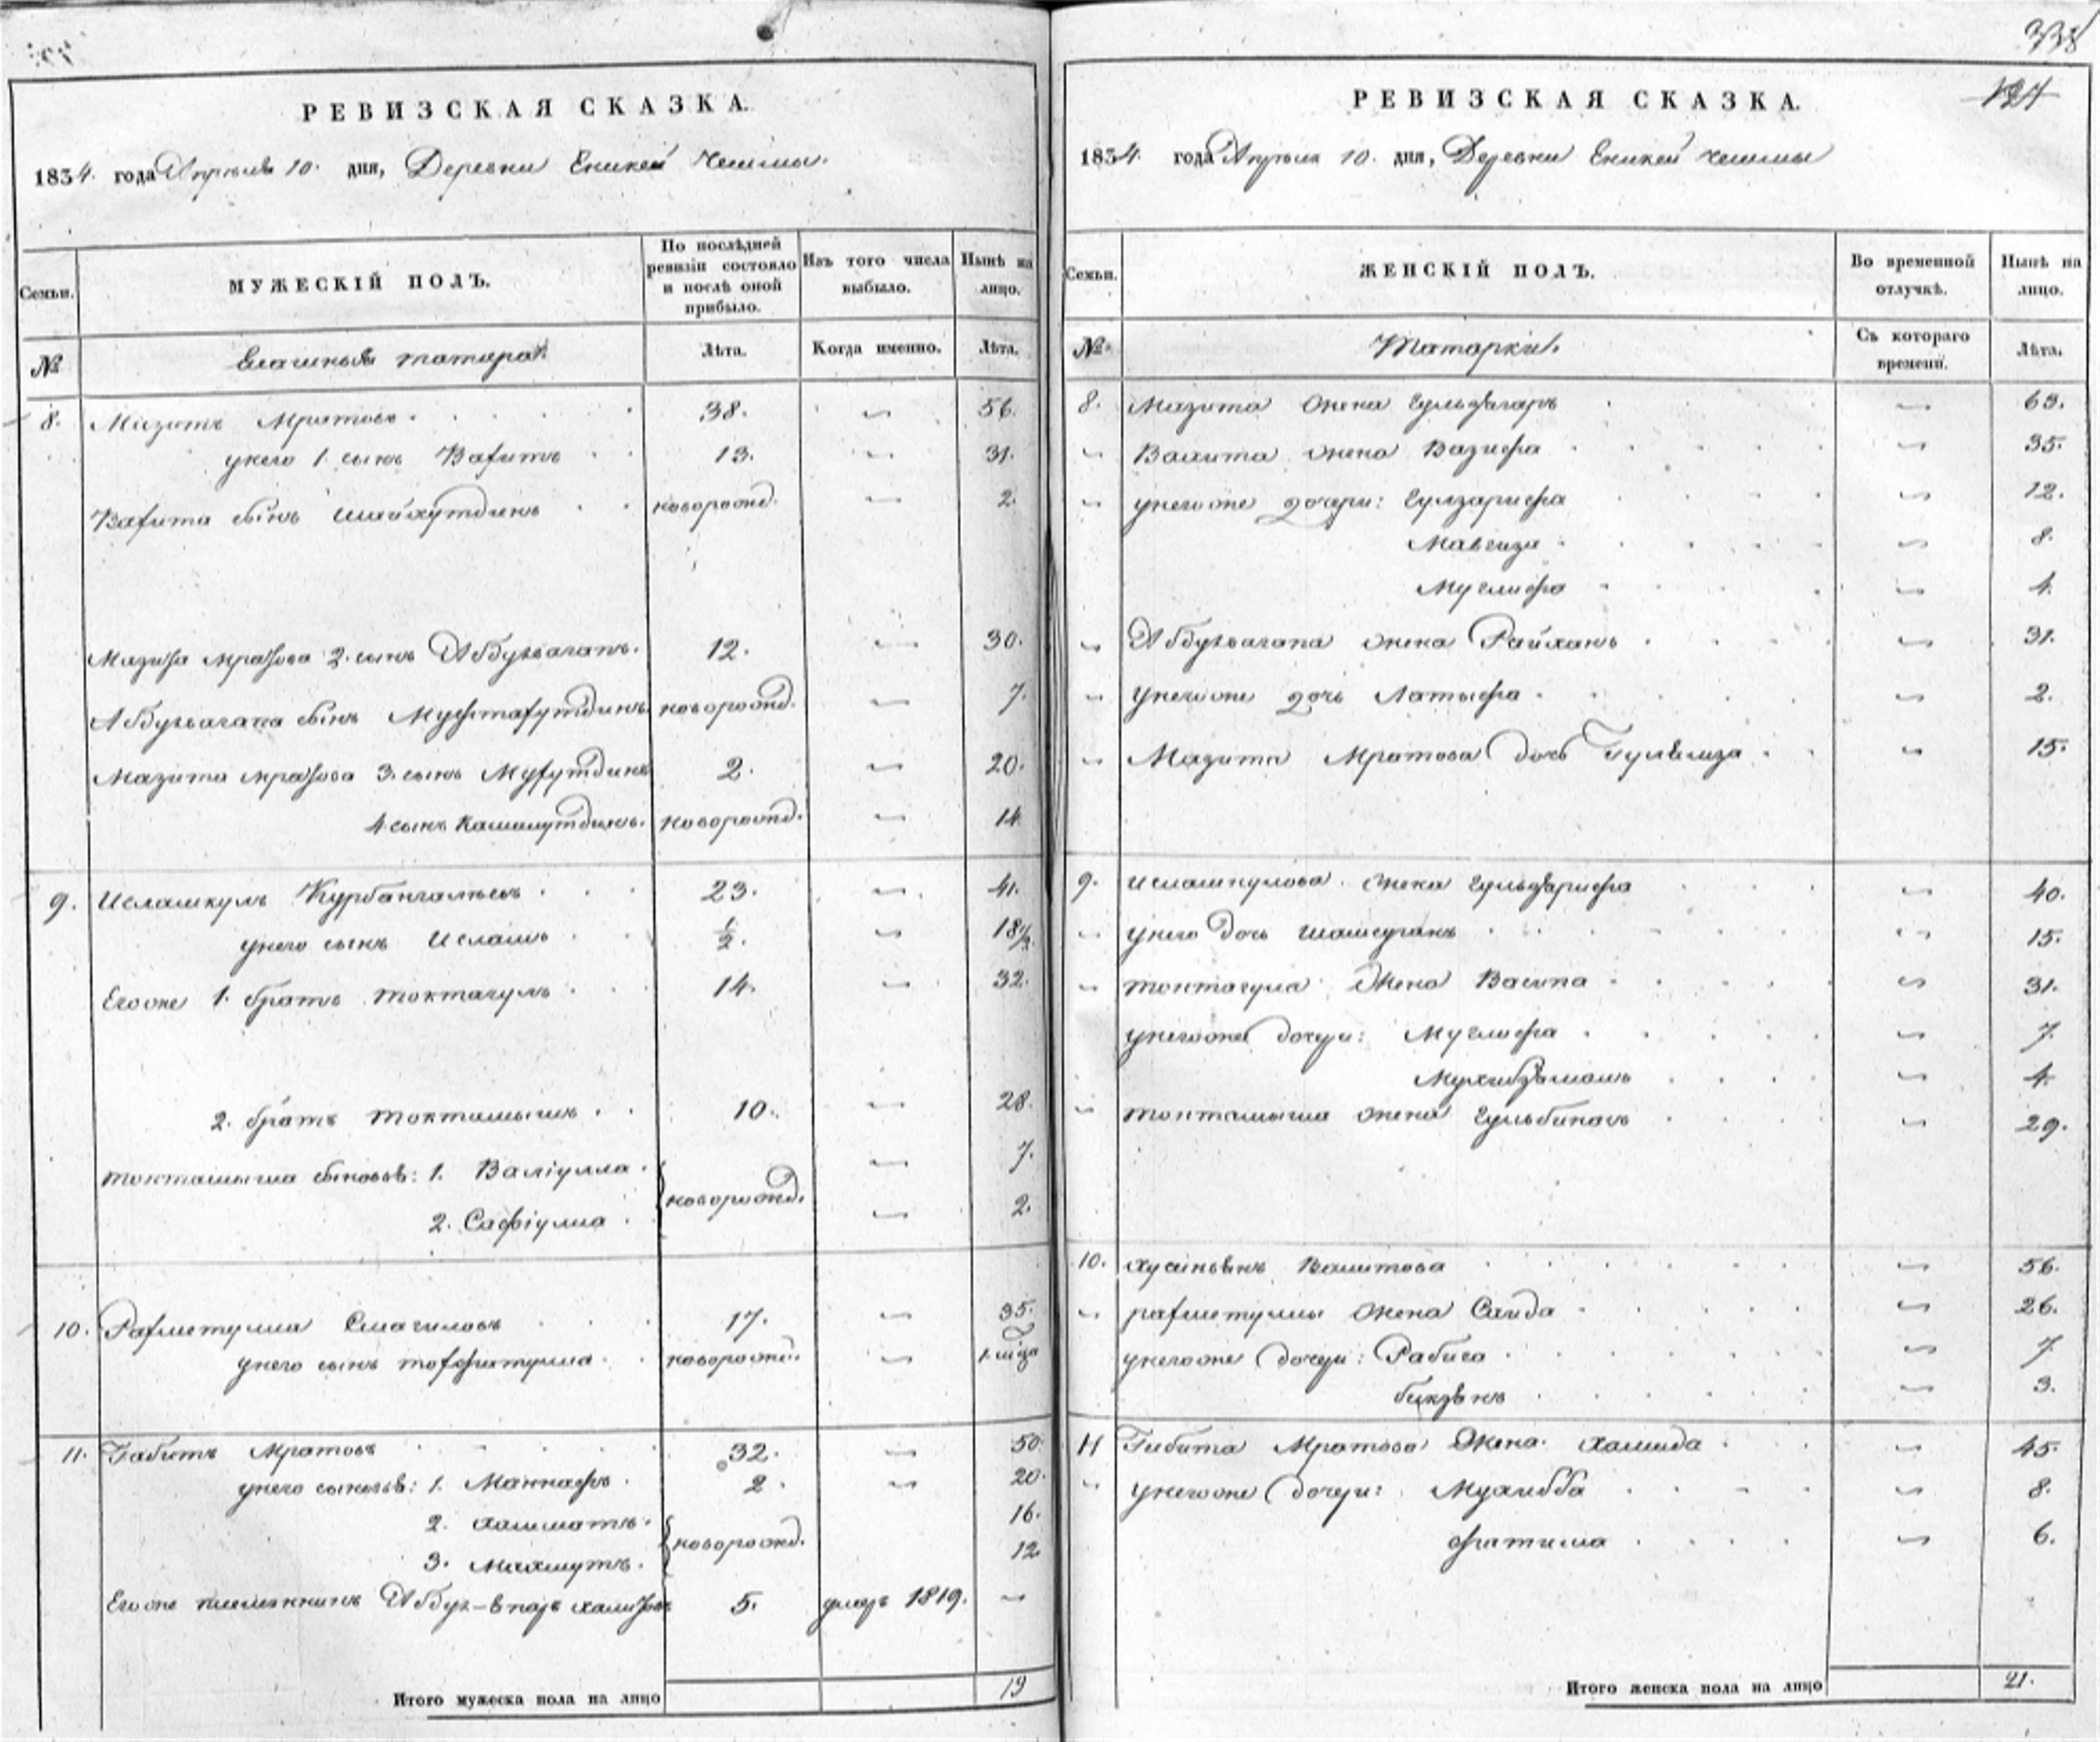 РЕВИЗСКАЯ СКАЗКА.
1834. года Апреля 10. дня, Деревни Еникей Чешмы.
Семьи.
МУЖЕСКІЙ ПОЛЪ.
По послѣдней ревизіи состояло и послѣ оной прибыло.
Изъ того числа выбыло.
Нынѣ на лицо.
№
татара
Лѣта.
Когда именно.
Лѣта.
8. Мазитъ Мратовъ 38. 56.
у него 1. сынъ Вахитъ 13. 31.
Вахита сынъ Шайхутдинъ новорожд. 2.
Мазита Мратова 2. сынъ Абдулвагапъ. 12. 30.
Абдулвагапа сынъ Мухтафутдинъ новорожд. 7.
Мазита Мратова 3. сынъ 2. 20.
4. сынъ Камалутдинъ. новорожд. 14.
9. Ислашкулъ Курбангалѣевъ 23. 41.
у него сынъ Исламъ 1/2. 18 1/2.
Его же 1. братъ Токтагулъ 14. 32.
2. братъ Токтамышъ 10. 28.
Токтамыша сыновья: 1. Валіулла 7.
новорожд.
2. Сафіулла 2.
10. Рахметулла Смагиловъ 17. 35.
у него сынъ новорожд. 1. м-ца
11. Габитъ Мратовъ 32. 50.
у него сыновья: 1. Маннафъ 2. 20.
2. Хамматъ. 16.
новорожд.
3. Махмутъ. 12.
Его же племянникъ Абдул- 5. умеръ 1819.
Итого мужеска пола на лицо 19
338
124
РЕВИЗСКАЯ СКАЗКА.
1834. года Апреля 10. дня, Деревни Еникей Чешмы
Семьи.
ЖЕНСКІЙ ПОЛЪ.
Во временной отлучкѣ.
Нынѣ на лицо.
№.
Татарки.
Съ котораго времени.
Лѣта.
8. Мазита жена Гульзагаръ 63.
Вахита жена Вазифа 35.
у него же дочери: Гулзарифа 12.
Мавгиза 8.
Муглифа 4.
Абдулвагапа жена Райханъ 31.
У него же дочь Латыфа 2.
Мазита Мратова дочь 15.
9. Ислашкулова жена Гульзарифа 40.
У него дочь Шамсуганъ 15.
Токтагула жена Васипа 31.
у него же дочери: Муглифа 7.
4.
Токтамыша жена Гульбиназъ 29.
10. Вамитова 56.
Рахметуллы жена Саида 26.
у него же дочери: Рабига 7.
3.
11 Габита Мратова жена Хамида 45.
У него же дочери: Мухибба 8.
Фатима 6.
Итого женска пола на лицо 21.